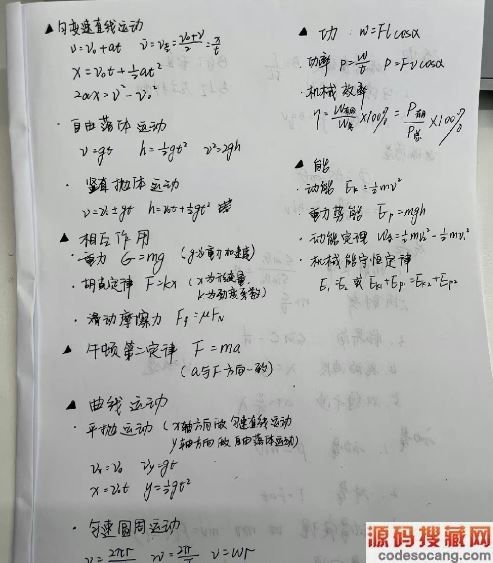 ▲匀变速直线运动
v=v₀+at  v̄=v_{t/2}=(v₀+v)/2=x/t
x=v₀t+½at²
2ax=v²-v₀²
·自由落体运动
v=gt  h=½gt²  v²=2gh
·竖直抛体运动
v=v₀±gt  h=v₀t±½gt²
▲相互作用
·重力 G=mg (g为重力加速度)
·胡克定律 F=kx (x为形变量,
k为劲度系数)
·滑动摩擦力 F_f=μF_N
▲牛顿第二定律 F=ma
(a与F方向一致)
▲曲线运动
·平抛运动 (x轴方向做匀速直线运动
y轴方向做自由落体运动)
vₓ=v₀  v_y=gt
x=v₀t  y=½gt²
·匀速圆周运动
v=2πr/  w=2π/T  v=wr
▲功: W=Flcosα
功率 P=W/t  P=Fvcosα
·机械效率
η=W有用/W总×100%=P有用/P总×100%
▲能
·动能 E_k=½mv²
·重力势能 E_p=mgh
·动能定理 W=½mv₂²-½mv₁²
·机械能守恒定律
E₁=E₂ 或 E_{k1}+E_{p1}=E_{k2}+E_{p2}
源码搜藏网
codesocang.com